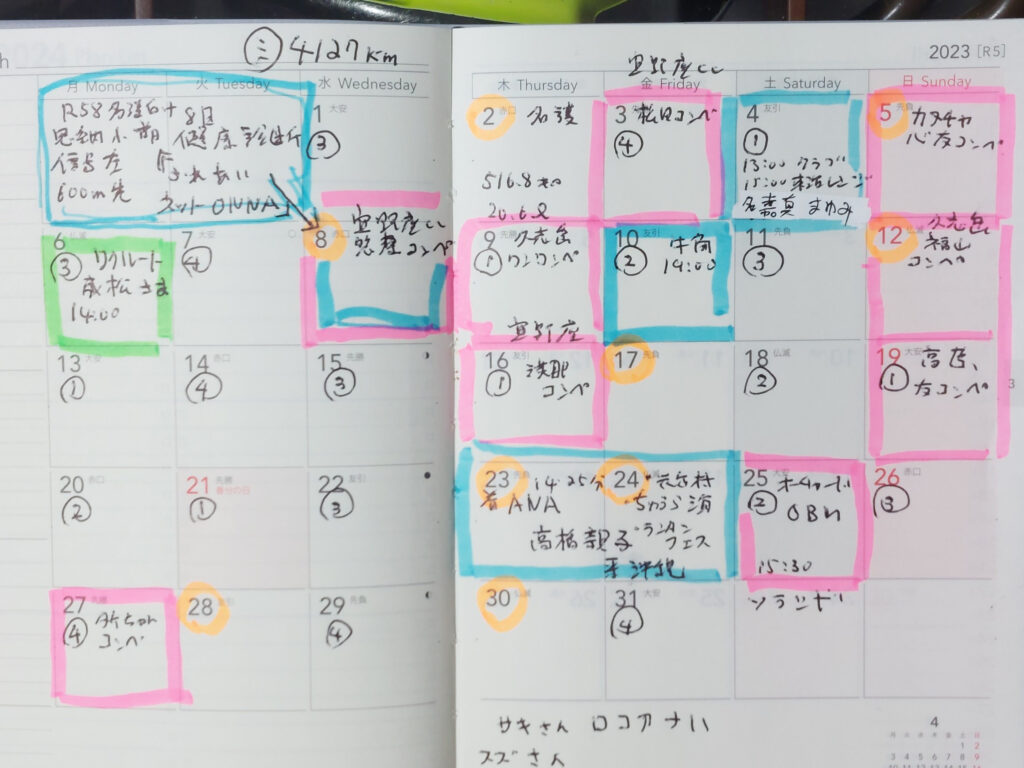 ㊂ 4127km
2023 [R5]
月 Monday
火 Tuesday
水 Wednesday
木 Thursday
金 Friday
土 Saturday
日 Sunday
宜野座CC
R58名護向け
恩納小前
信号左
600m先
8日
健康診断
ふれあい
ネットONNA
1 大安
③
2 赤口
名護
516.8
20.6ℓ
3
松田コンペ
④
4 友引
①
13:00 クラブ
15:00
名嘉真 まゆみ
5 先負
カヌチャ
心友コンペ
6 仏滅
③ リクルート
14:00
7 大安
④
8 赤口
宜野座CC
コンペ
9 先勝
① 久志岳
ワンワンペ
10 友引
② 牛角
19:00
11 先負
③
12 仏滅
久志岳
福山
コンペ
13 大安
①
14 赤口
④
15 先勝
③
宜野座
16 友引
①
コンペ
17 先負
18 仏滅
②
19 大安
①
友コンペ
20 赤口
②
21 先勝
春分の日
①
22 友引
③
23 先負
14:25分
着 ANA
高橋親子
24 仏滅
ちゅら海
ランタン
フェス
来沖縄
25 大安
② オーチャード
OBN
15:30
ソランド
26 赤口
③
27 先勝
④
コンペ
28 友引
29 先負
④
30 仏滅
31 大安
④
サキさん ロコアナハ
スズさん
4
月 火 水 木 金 土 日
1 2
3 4 5 6 7 8 9